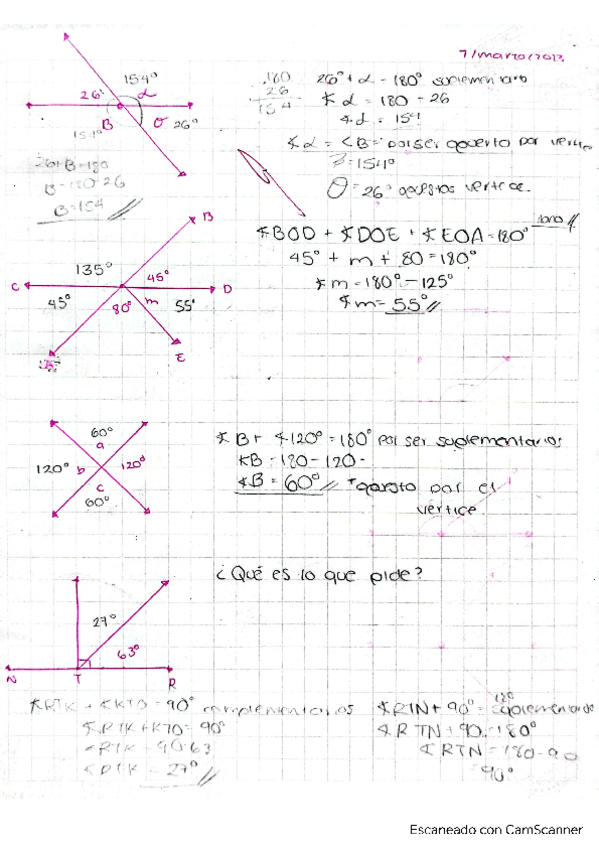 7/marzo/202
154°
26°
α
B
θ 26°
154°
180
26
154
26° + α = 180° suplementario
∡α = 180 - 26
∡α = 154
∡α = <B = por ser opuesto por vertice
B = 154°
θ = 26° opuestos vertice.
26 + B = 180
B = 180 - 26
B = 154
∡BOD + ∡DOE + ∡EOA = 180°
45° + m + 80 = 180°
∡m = 180° - 125°
∡m = 55°
B
135°
45°
C
D
45°
80°
m
55°
E
60°
a
120°
b
120°
c
60°
∡B + ∡120° = 180° por ser suplementarios
∡B = 180 - 120
∡B = 60° *opuesto por el
vértice.
¿Qué es lo que pide?
27°
63°
N
T
R
∡RTK + ∡KTO = 90° complementarios
∡RTK + KTO = 90°
∡RTK = 90-63
= 27°
∡RTN + 90° =
180°
∡RTN + 90 = 180°
∡RTN = 180-90
= 90°
Escaneado con CamScanner